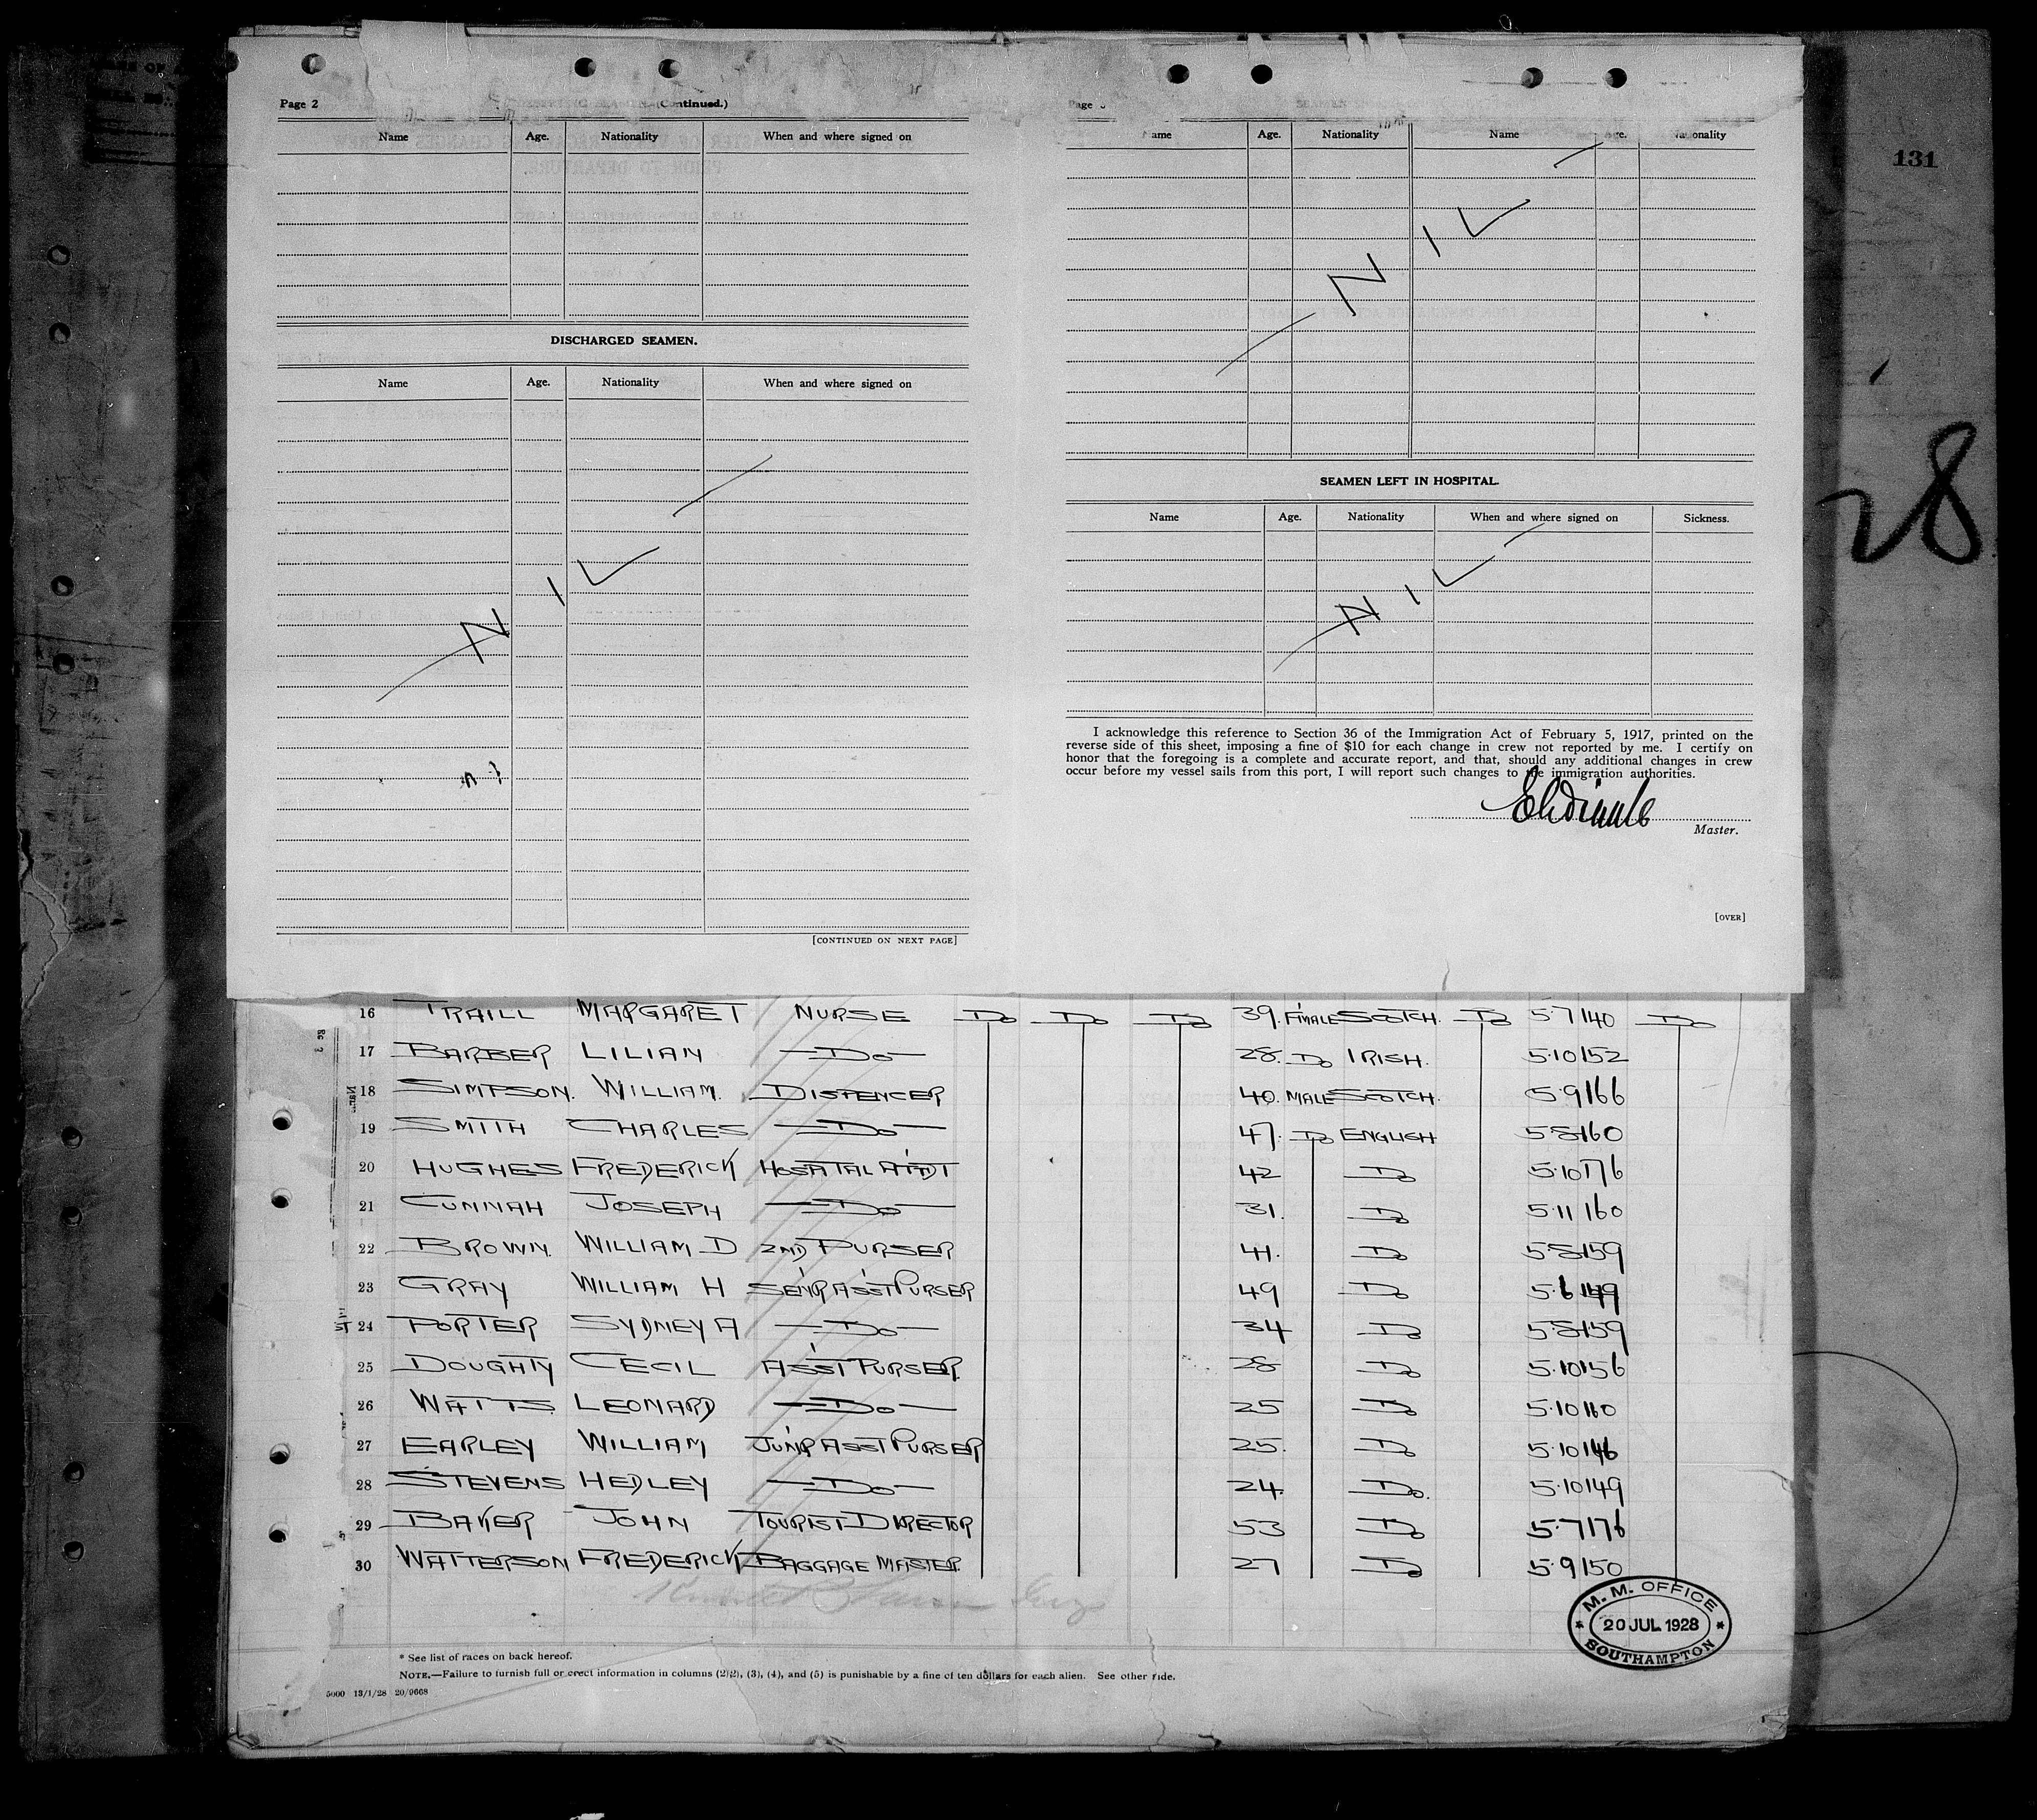 131
28
Page 2 (Continued.)
Name Age. Nationality When and where signed on
DISCHARGED SEAMEN.
Name Age. Nationality When and where signed on
NIL
[CONTINUED ON NEXT PAGE]
Page
Name Age. Nationality Name Age. Nationality
NIL
SEAMEN LEFT IN HOSPITAL.
Name Age. Nationality When and where signed on Sickness.
NIL
I acknowledge this reference to Section 36 of the Immigration Act of February 5, 1917, printed on the
reverse side of this sheet, imposing a fine of $10 for each change in crew not reported by me. I certify on
honor that the foregoing is a complete and accurate report, and that, should any additional changes in crew
occur before my vessel sails from this port, I will report such changes to the immigration authorities.
Master.
[OVER]
16 TRAILL MARGARET NURSE Do Do Do 39. FIMALE SCOTCH. Do 5.7 140 Do
17 BARBER LILIAN Do 28. Do IRISH. 5.10 152
18 SIMPSON. WILLIAM. DISPENCER 40. MALE SCOTCH. 5.9 166
19 SMITH CHARLES Do 47. Do ENGLISH 5.8 160
20 HUGHES FREDERICK HOSPITAL ATTDT 42 Do 5.10 176
21 CUNNAH JOSEPH Do 31. Do 5.11 160
22 BROWN. WILLIAM D 2ND PURSER 41. Do 5.8 159
23 GRAY WILLIAM H SENR ASST PURSER 49 Do 5.6 149
24 PORTER SYDNEY A Do 34 Do 5.8 159
25 DOUGHTY CECIL ASST PURSER. 28 Do 5.10 156
26 WATTS LEONARD Do 25 Do 5.10 160
27 EARLEY WILLIAM JUNR ASST PURSER 25. Do 5.10 146
28 STEVENS HEDLEY Do 24. Do. 5.10 149
29 BAKER JOHN TOURIST DIRECTOR 53 Do 5.7 176
30 WATTERSON FREDERICK BAGGAGE MASTER. 27 Do 5.9 150
M. M. OFFICE
20 JUL 1928
SOUTHAMPTON
* See list of races on back hereof.
NOTE.—Failure to furnish full or erect information in columns (2), (3), (4), and (5) is punishable by a fine of ten dollars for each alien. See other side.
5000 13/1/28 20/9668